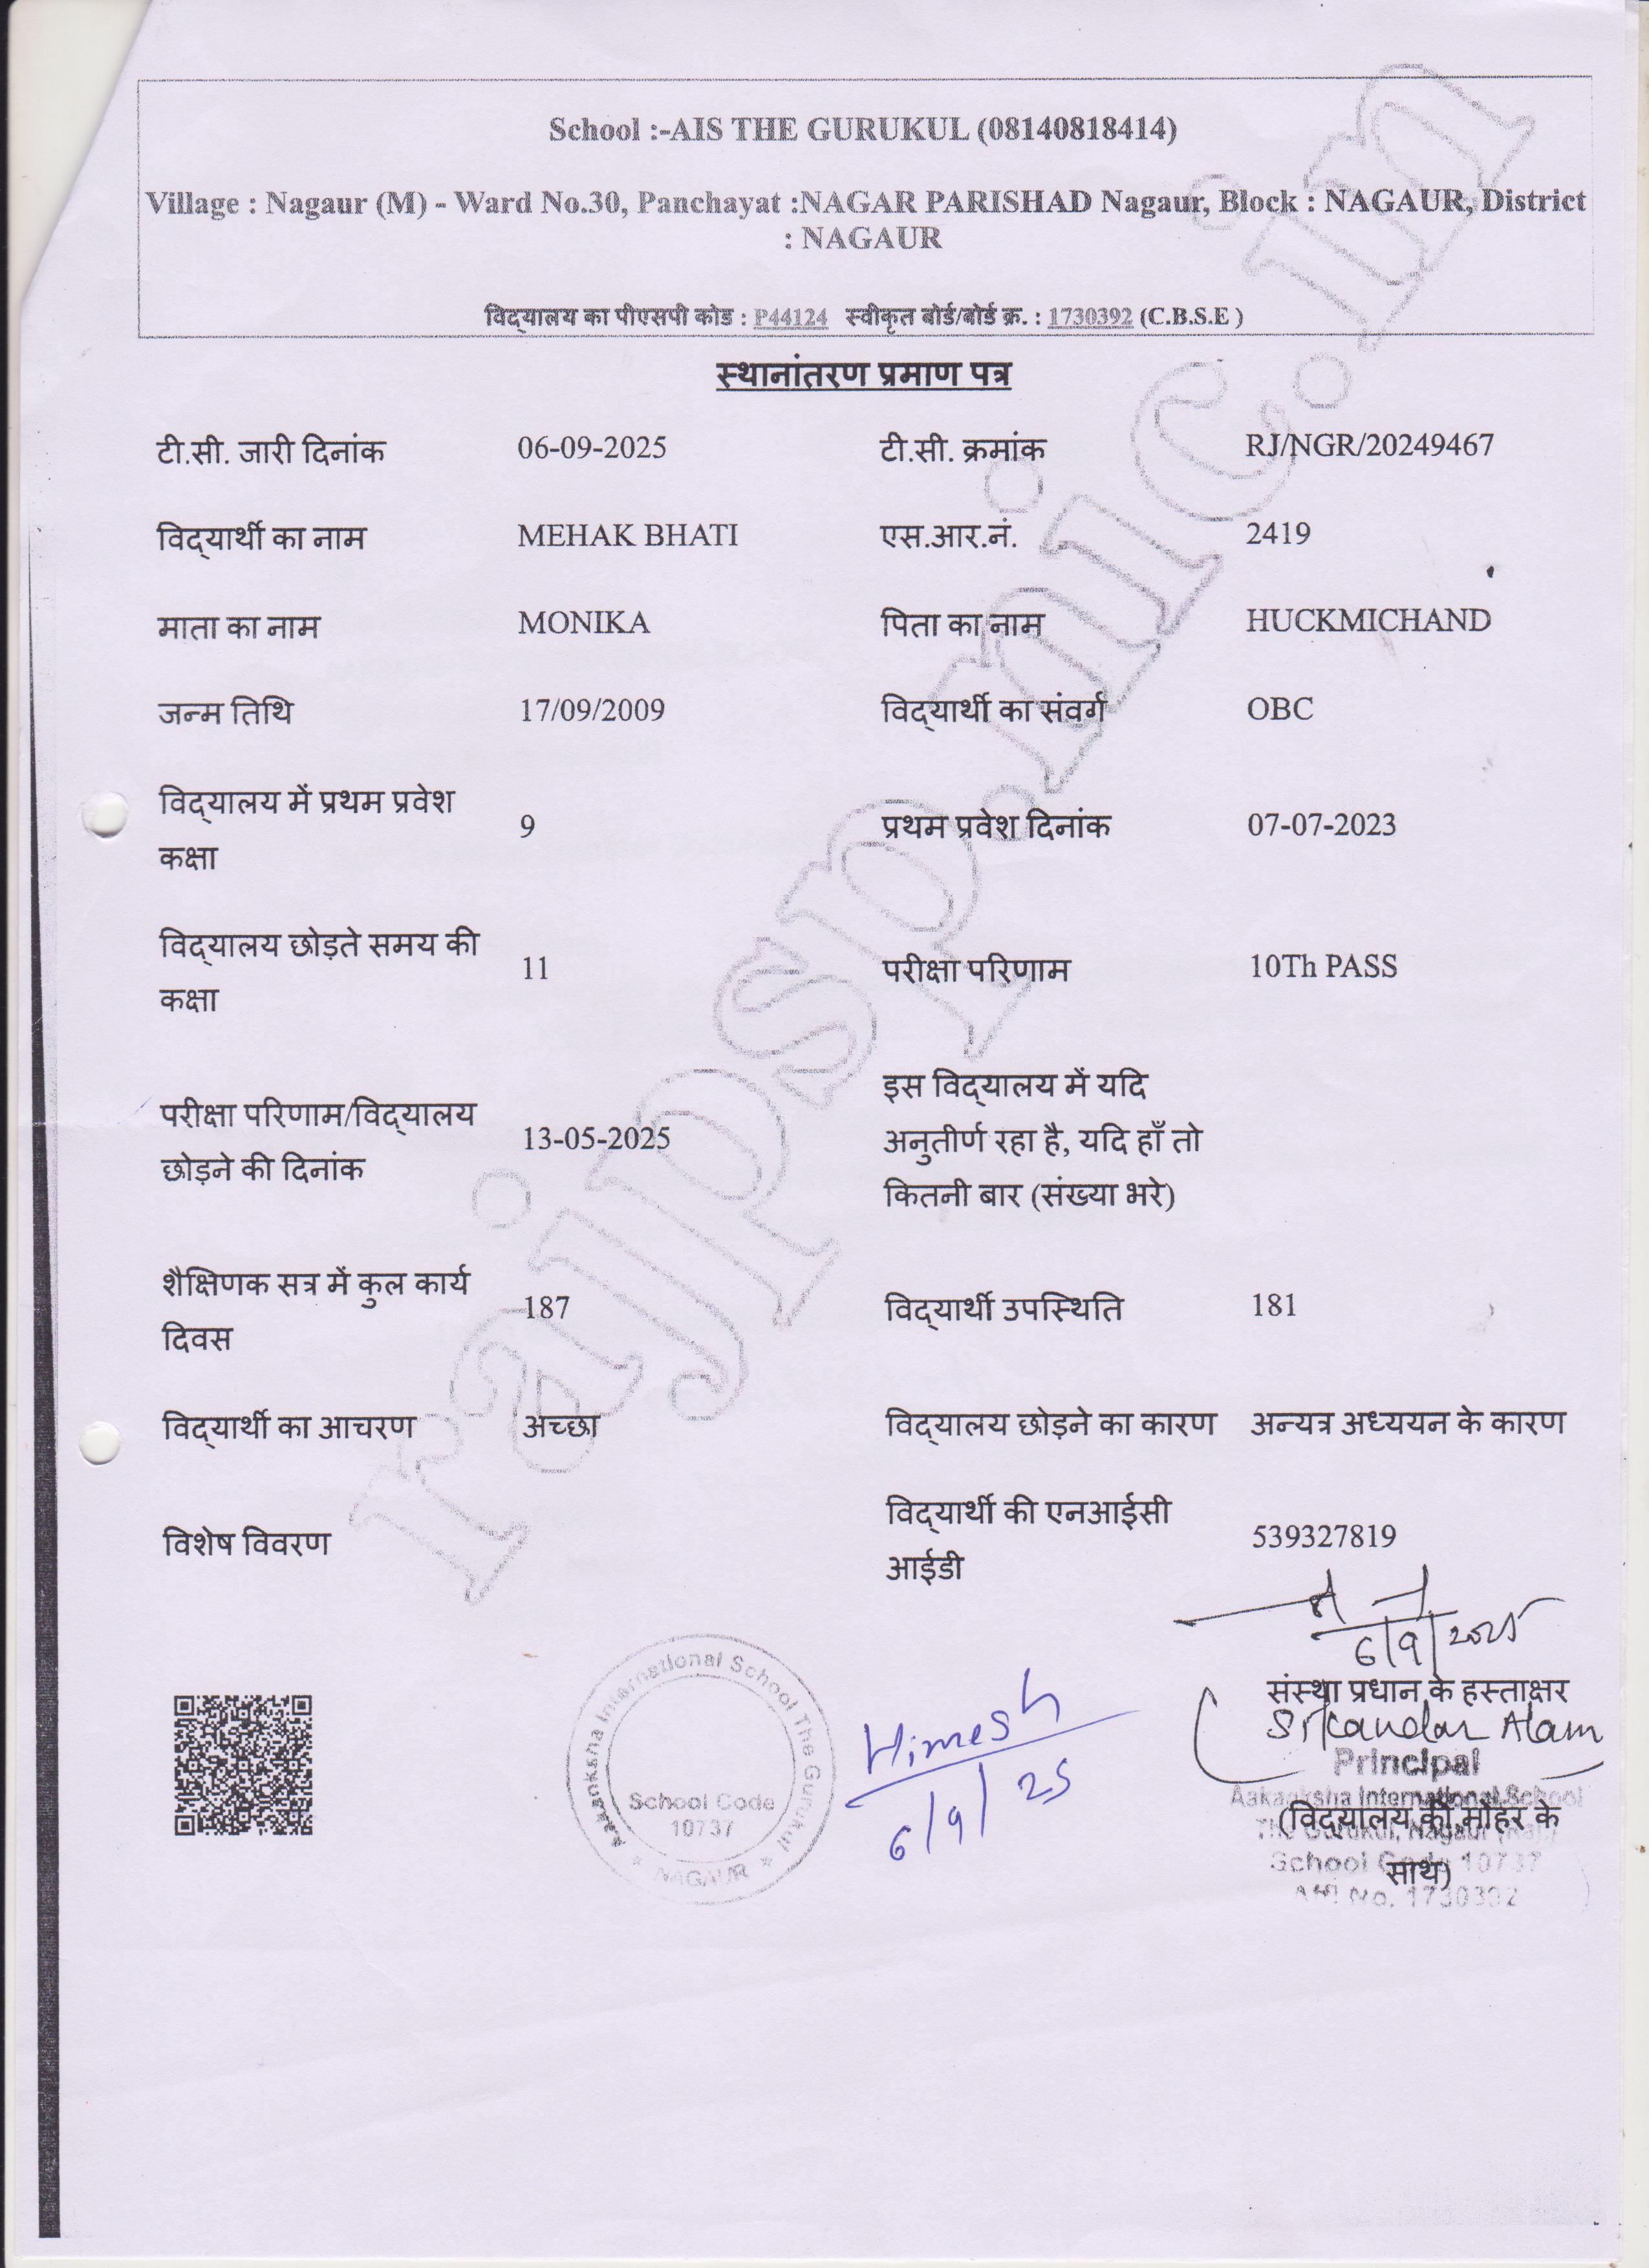 School :-AIS THE GURUKUL (08140818414)
Village : Nagaur (M) - Ward No.30, Panchayat :NAGAR PARISHAD Nagaur, Block : NAGAUR, District
: NAGAUR
विद्यालय का पीएसपी कोड : P44124 स्वीकृत बोर्ड/बोर्ड क्र. : 1730392 (C.B.S.E )
स्थानांतरण प्रमाण पत्र
टी.सी. जारी दिनांक 06-09-2025 टी.सी. क्रमांक RJ/NGR/20249467
विद्यार्थी का नाम MEHAK BHATI एस.आर.नं. 2419
माता का नाम MONIKA पिता का नाम HUCKMICHAND
जन्म तिथि 17/09/2009 विद्यार्थी का संवर्ग OBC
विद्यालय में प्रथम प्रवेश
कक्षा
9
प्रथम प्रवेश दिनांक 07-07-2023
विद्यालय छोड़ते समय की
कक्षा
11
परीक्षा परिणाम 10Th PASS
परीक्षा परिणाम/विद्यालय
छोड़ने की दिनांक
13-05-2025
इस विद्यालय में यदि
अनुतीर्ण रहा है, यदि हाँ तो
कितनी बार (संख्या भरे)
शैक्षिणक सत्र में कुल कार्य
दिवस
187
विद्यार्थी उपस्थिति 181
विद्यार्थी का आचरण अच्छा विद्यालय छोड़ने का कारण अन्यत्र अध्ययन के कारण
विशेष विवरण
विद्यार्थी की एनआईसी
आईडी
539327819
rajpsp.nic.in
6/9/2025
संस्था प्रधान के हस्ताक्षर
Sikandar Alam
Principal
Aakanksha International School
(विद्यालय की मोहर के
The Gurukul, Nagaur (Raj.)
School Code 10737
साथ)
Affi No. 1730392
Himesh
6/9/25
Aakanksha International School The Gurukul
School Code
10737
NAGAUR